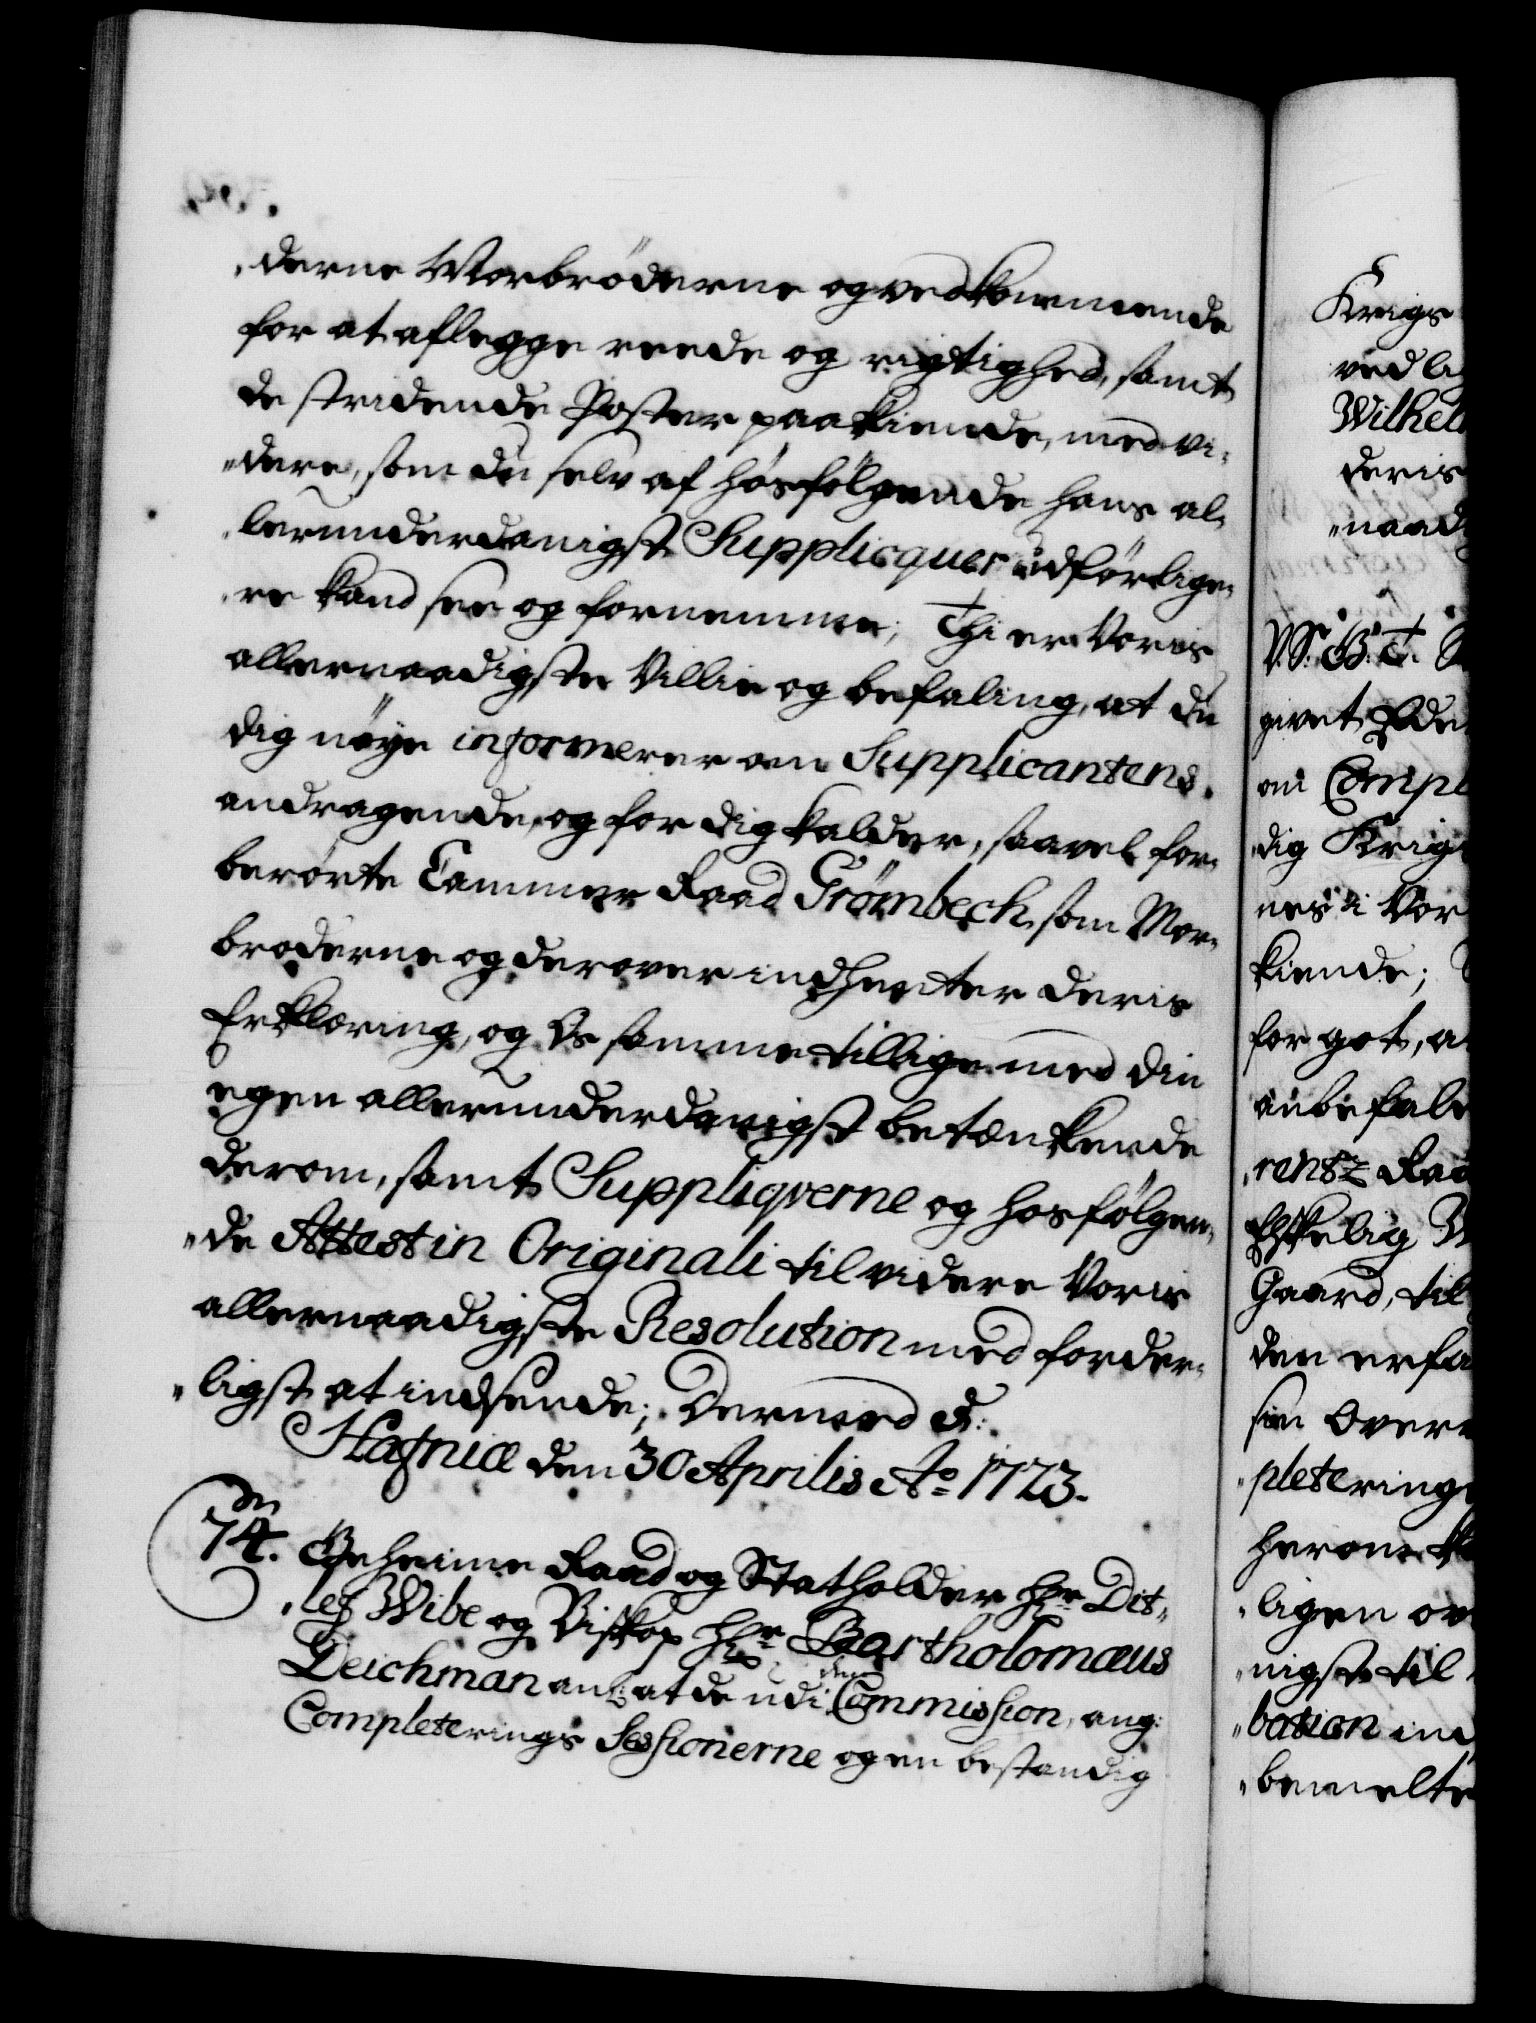 „derne Morbröderne og vedkommende
for at aflegge reede og rigtighed, samt
de stridende Poster paakiende, med vi-
„dere, som du selv af hosfølgende hans al-
„lerunderdanigst Supplicquer udførlige-
„re kand see og fornemme; Thi er Voris
allernaadigste Villie og befaling, at du
dig nøye informerer om Supplicantens
andragende, og for dig kalder, saavel for-
berørte Cammer Raad Grømbech, som Mor-
broderne og derover indhenter deris
Erklæring, og Os samme tillige med din
egen allerunderdanigst betænkende
derom, samt Suppliqverne og hosfølgen-
„de Attest in Originali til videre Voris
allernaadigste Resolution med forder-
„ligst at indsende; Dermed d:
Hafniæ den 30 Aprilis Ao 1723.
74. Geheime Raad og Statholder Hr Dit-
„lef Wibe og Biskop Hr Bartholomæus
Deichman anl: at de udi den Commission, ang:
Completerings Sessionerne og en bestandig
Krigs
ved li
Wilhel
deris
„naad
V. S. G. T.
givet
om Compl
dig Krig
nes i Vor
kiende;
for got, a
anbefale
„rentz Raa
Gaard, til
den erfa
sin Over
„pletering
herom
„ligen ov
„nigste til
„bation ind
„bemelte